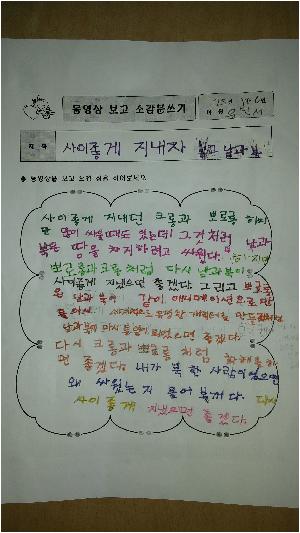 동영상 보고 소감문쓰기
제 목
사이좋게 지내자 남과 북
동영상을 보고 느낀 점을 적어보세요.
사이좋게 지내던 크롱과 뽀로로 하지
만 많이 싸울때도 있는데 그것처럼 남과
북은 땅을 차지하려고 싸웠다.
뽀로로과 크롱 처럼 다시 남과북이
사이좋게 지냈으면 좋겠다. 그리고 뽀로로
은 남과 북이 같이 애니메이션으로 만
들어서 세계적으로 유명한 캐릭터를 만들었다
남과 북에 다시 통일이 되었으면 좋겠다.
다시 크롱과 뽀로로 처럼 화해를 하
면 좋겠다. 내가 북한 사람이 있으면
왜 싸웠는지 물어 볼거다. 다시
사이 좋게 지냈으면 좋겠다.